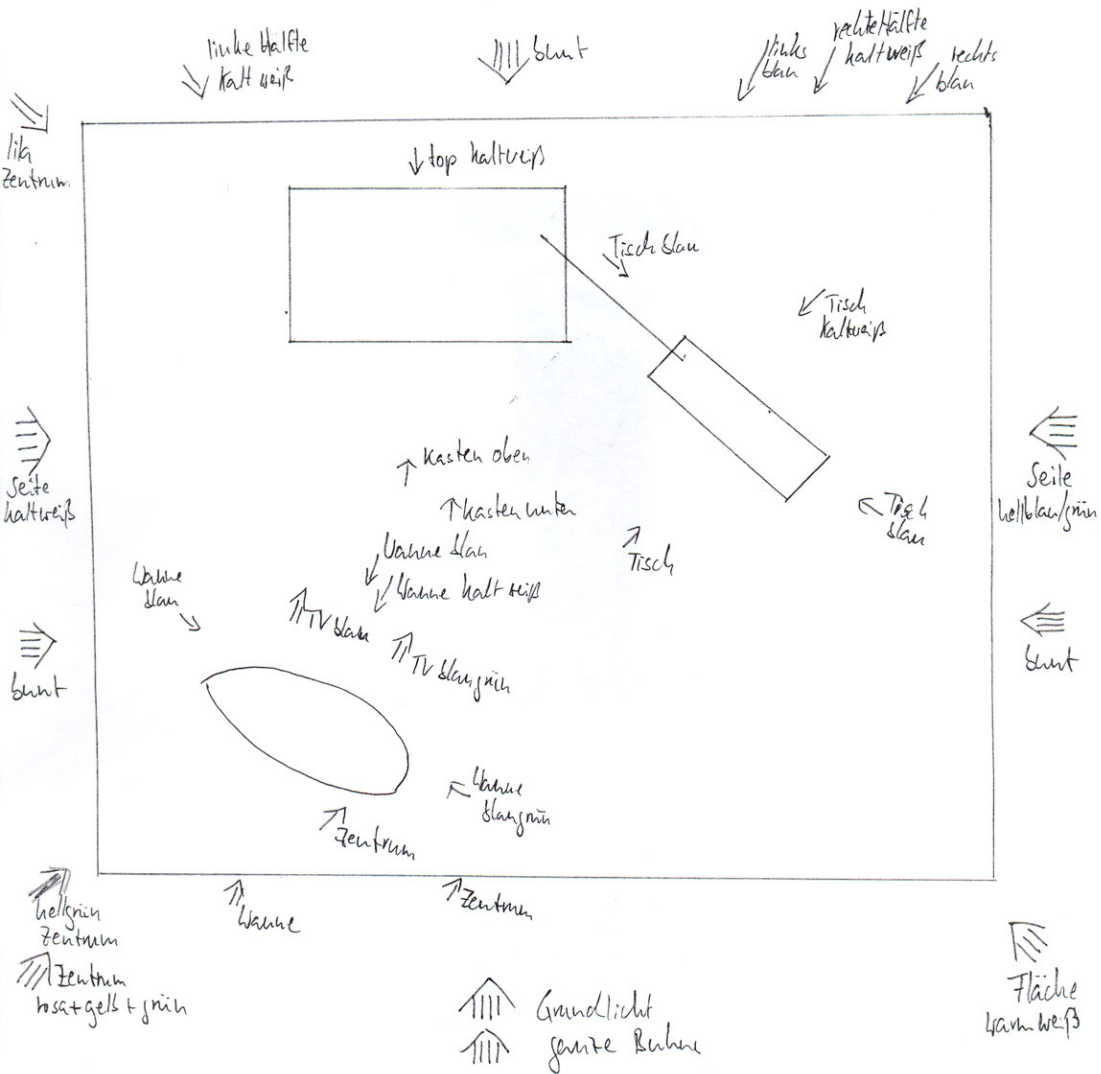 linke Hälfte
kaltweiß
bunt
links
blau
rechte Hälfte
kaltweiß
rechts
blau
lila
Zentrum
top kaltweiß
Tisch blau
Tisch
kaltweiß
Kasten oben
Kasten unten
Seite
kaltweiß
Seite
hellblau/grün
Tisch
blau
Tisch
Wanne blau
Wanne kaltweiß
Wanne
blau
TV blau
TV blaugrün
bunt
bunt
Wanne
blaugrün
Zentrum
hellgrün
Zentrum
Wanne
Zentrum
Zentrum
rosa+gelb+grün
Grundlicht
ganze Bühne
Fläche
warmweiß